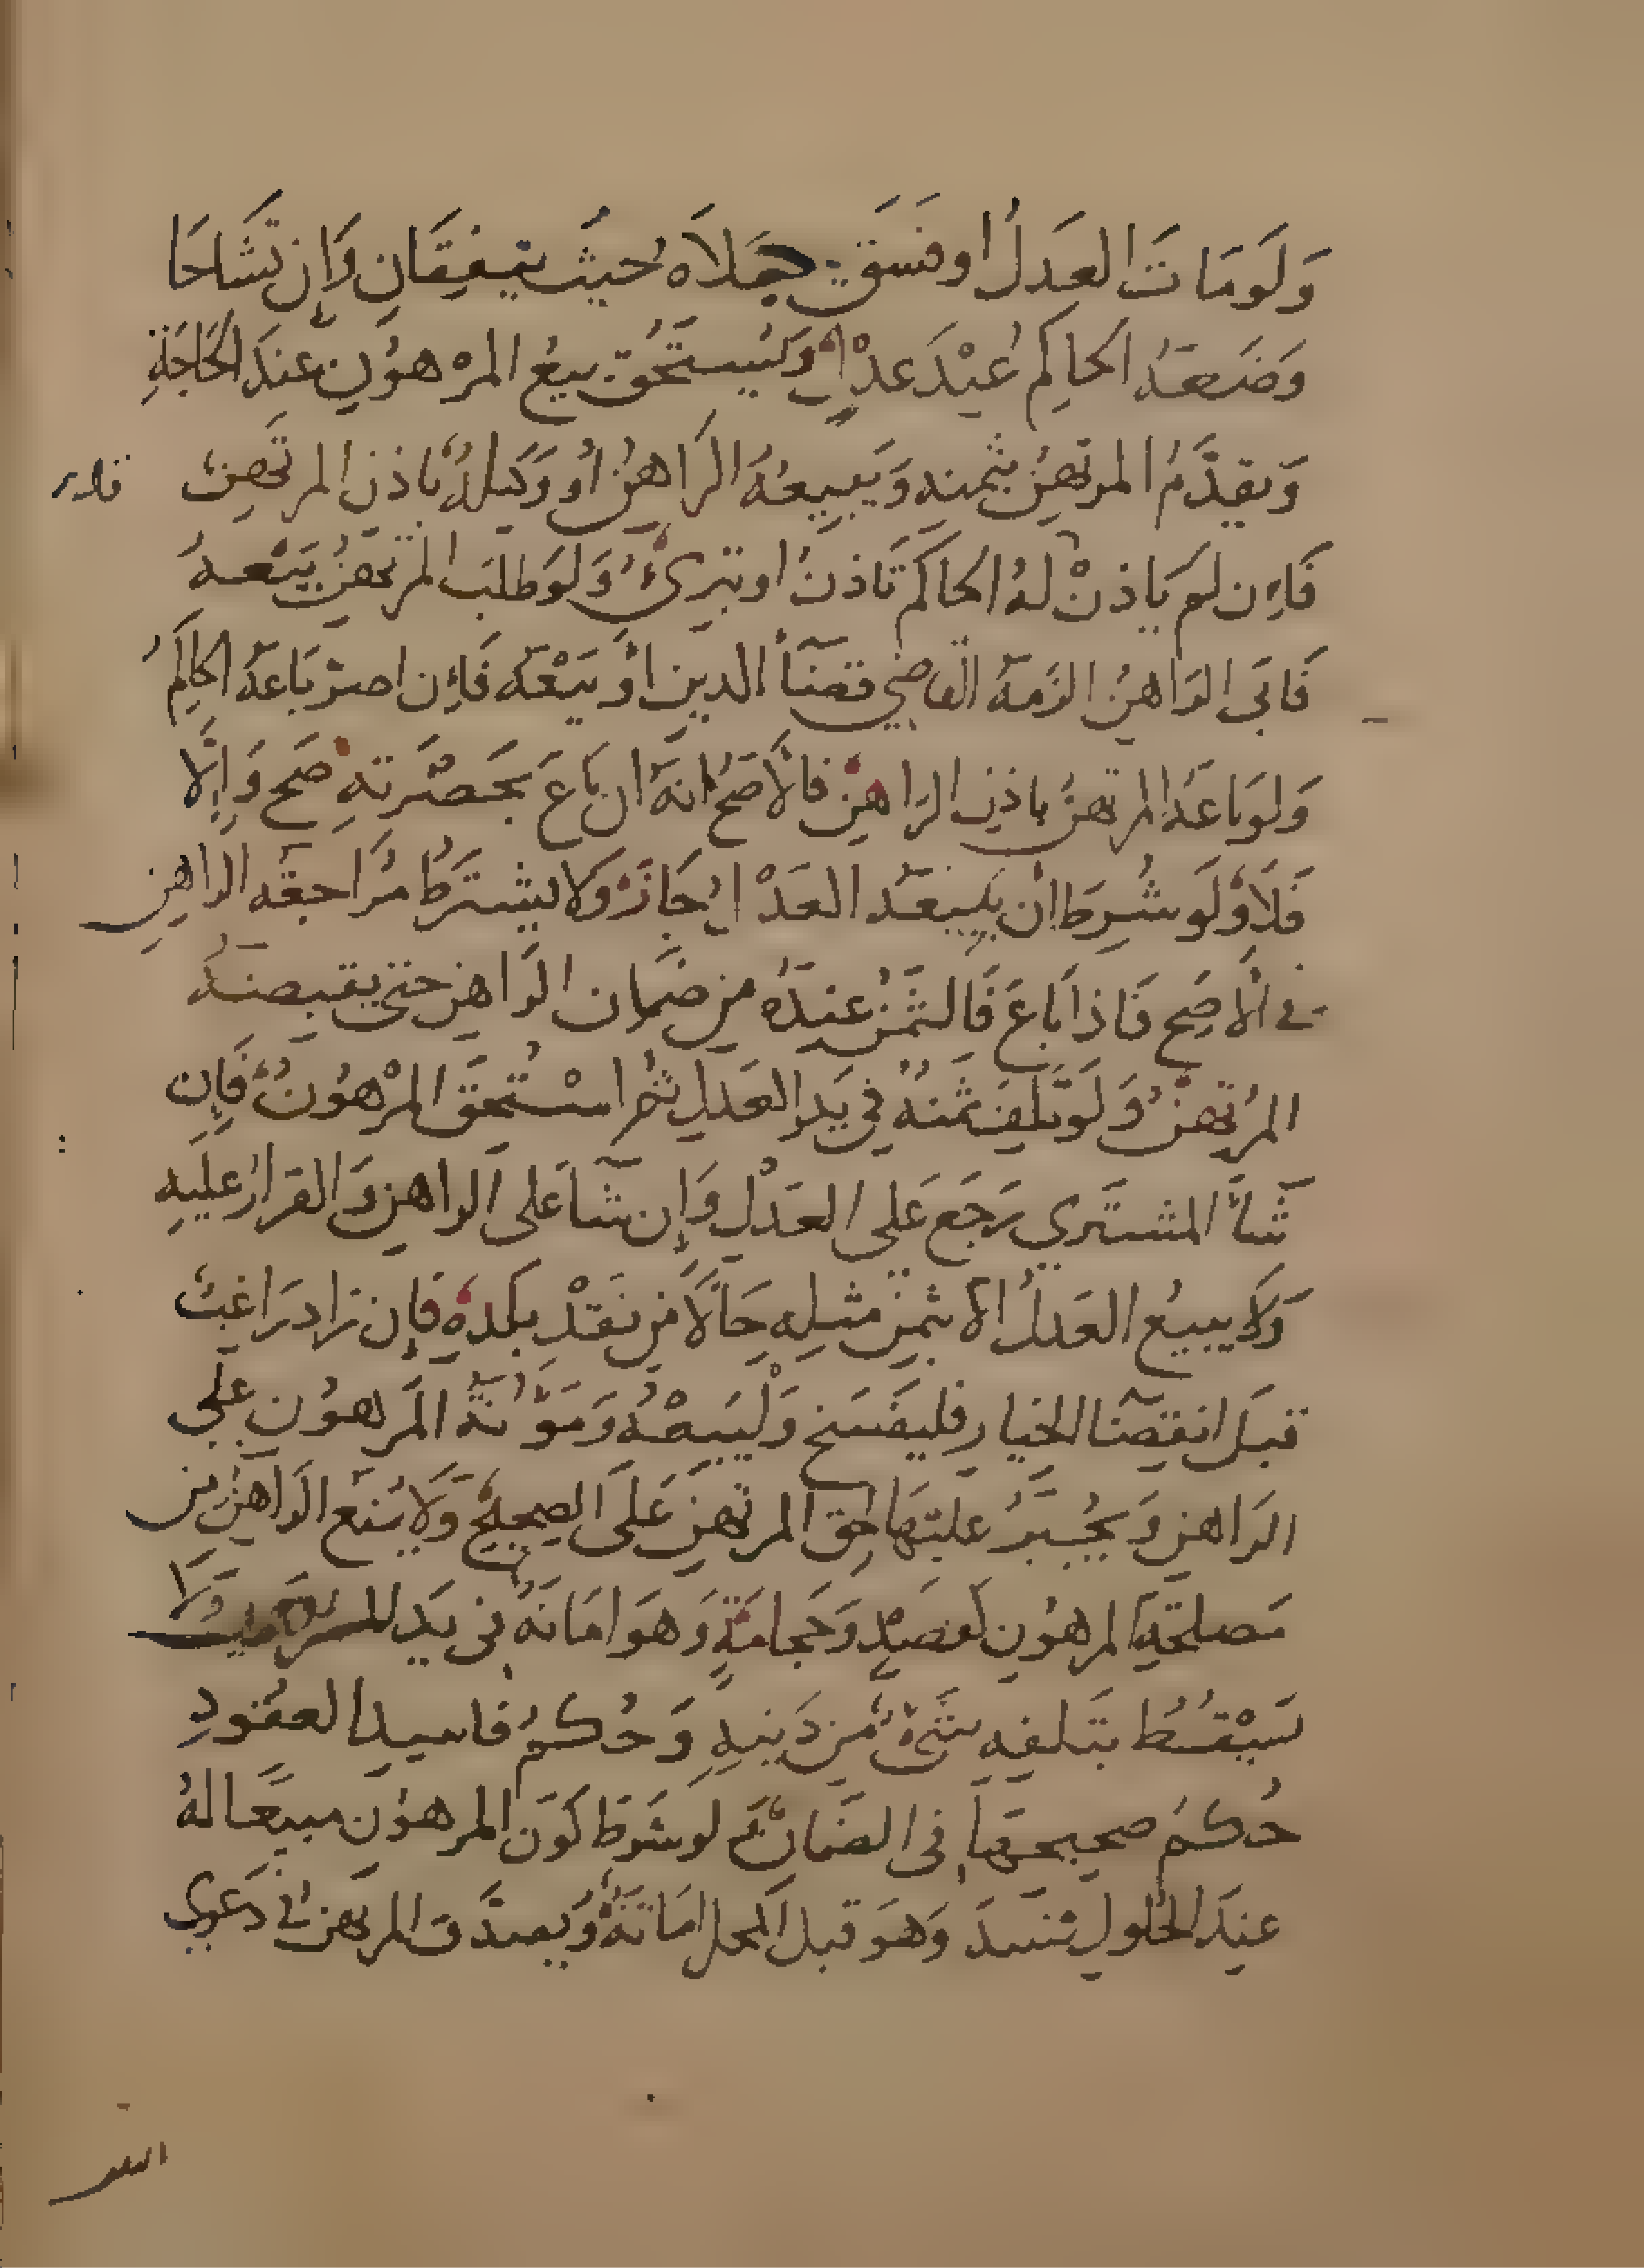 وَلَو مَاتَ العَدلُ او فسَقَ جعلاه حيثُ يتفقَانِ وَإن تشَاحَا
وَضعَهُ الحاكِم عِنْدَ عدْلٍ وَيُستحَق بيعُ المرْهوُنِ عندَ الحَاجَةِ
وَيقدَّمُ المرتهنُ بثمنه وَيَبيعُهُ الرَاهنُ أو وَكيلهُ باذن المرتهن
فَإن لم يَاذنْ لهُ الحاكم تَاذنُ او تبرئُ وَلو طلبَ المرتهنُ بَيْعهُ
فَابَى الرَاهنُ الزَمهُ القاضي قضَآءَ الدين اوْ بَيْعَهُ فَإن اصرّ بَاعَهُ الحاكِمُ
وَلو باعَهُ المرتهنُ باذن الرَاهنِ فالأصَحُ انهُ ان بَاعَ بحَضْرَتهِ صَح وَإلَّا
فَلَا وَلَو شُرِطَ انْ يَبيعَهُ العَدْلُ جَازَ وَلا يشترَطُ مُرَاجعَة الراهنِ
في الأصَح فَاذا بَاعَ فَالثمَنُ عندَهُ من ضمان الرَاهن حتى يقبضهُ
المُرتهنُ وَلَو تَلِفَ ثمَنهُ في يَد العَدلِ ثم اسْتُحقَ المرْهوُنُ فَإن
شآءَ المشترَي رَجَع عَلى العَدْلِ وَإن شآءَ عَلى الراهن وَالقرَارُ عليهِ
وَلا يبيعُ العَدلُ الا بثمنِ مثله حَالًا من نقدْ بَلدهِ فَإن زاد رَاغبٌ
قبلَ انقضآءِ الخيار فليفسَخ وَلْيَبعْهُ وَمَؤُنَةُ المَرهوُنِ عَلى
الرَاهنِ وَيُجْبَرُ عليهَا لحَق المرتهن عَلى الصحيح وَلَا يُمنَع الرَاهنُ من
مَصلحَةِ المرهوُن كفصَدٍ وَحجَامَةٍ وَهوَ امَانَةٌ في يَد المرتهن وَلا
يَسْقُطُ بتَلفِهِ شَئٌ من دَينهِ وَحُكمُ فاسِد العقُودِ
حُكمُ صحيحهَا في الضمَانِ لو شرَطَ كَونَ المرهوُن مبيعًا لهُ
عندَ الحُلولِ فسَدَ وَهوَ قبلَ المحل امَانَةٌ وَيصدَّق المرتهنُ في دَعوي